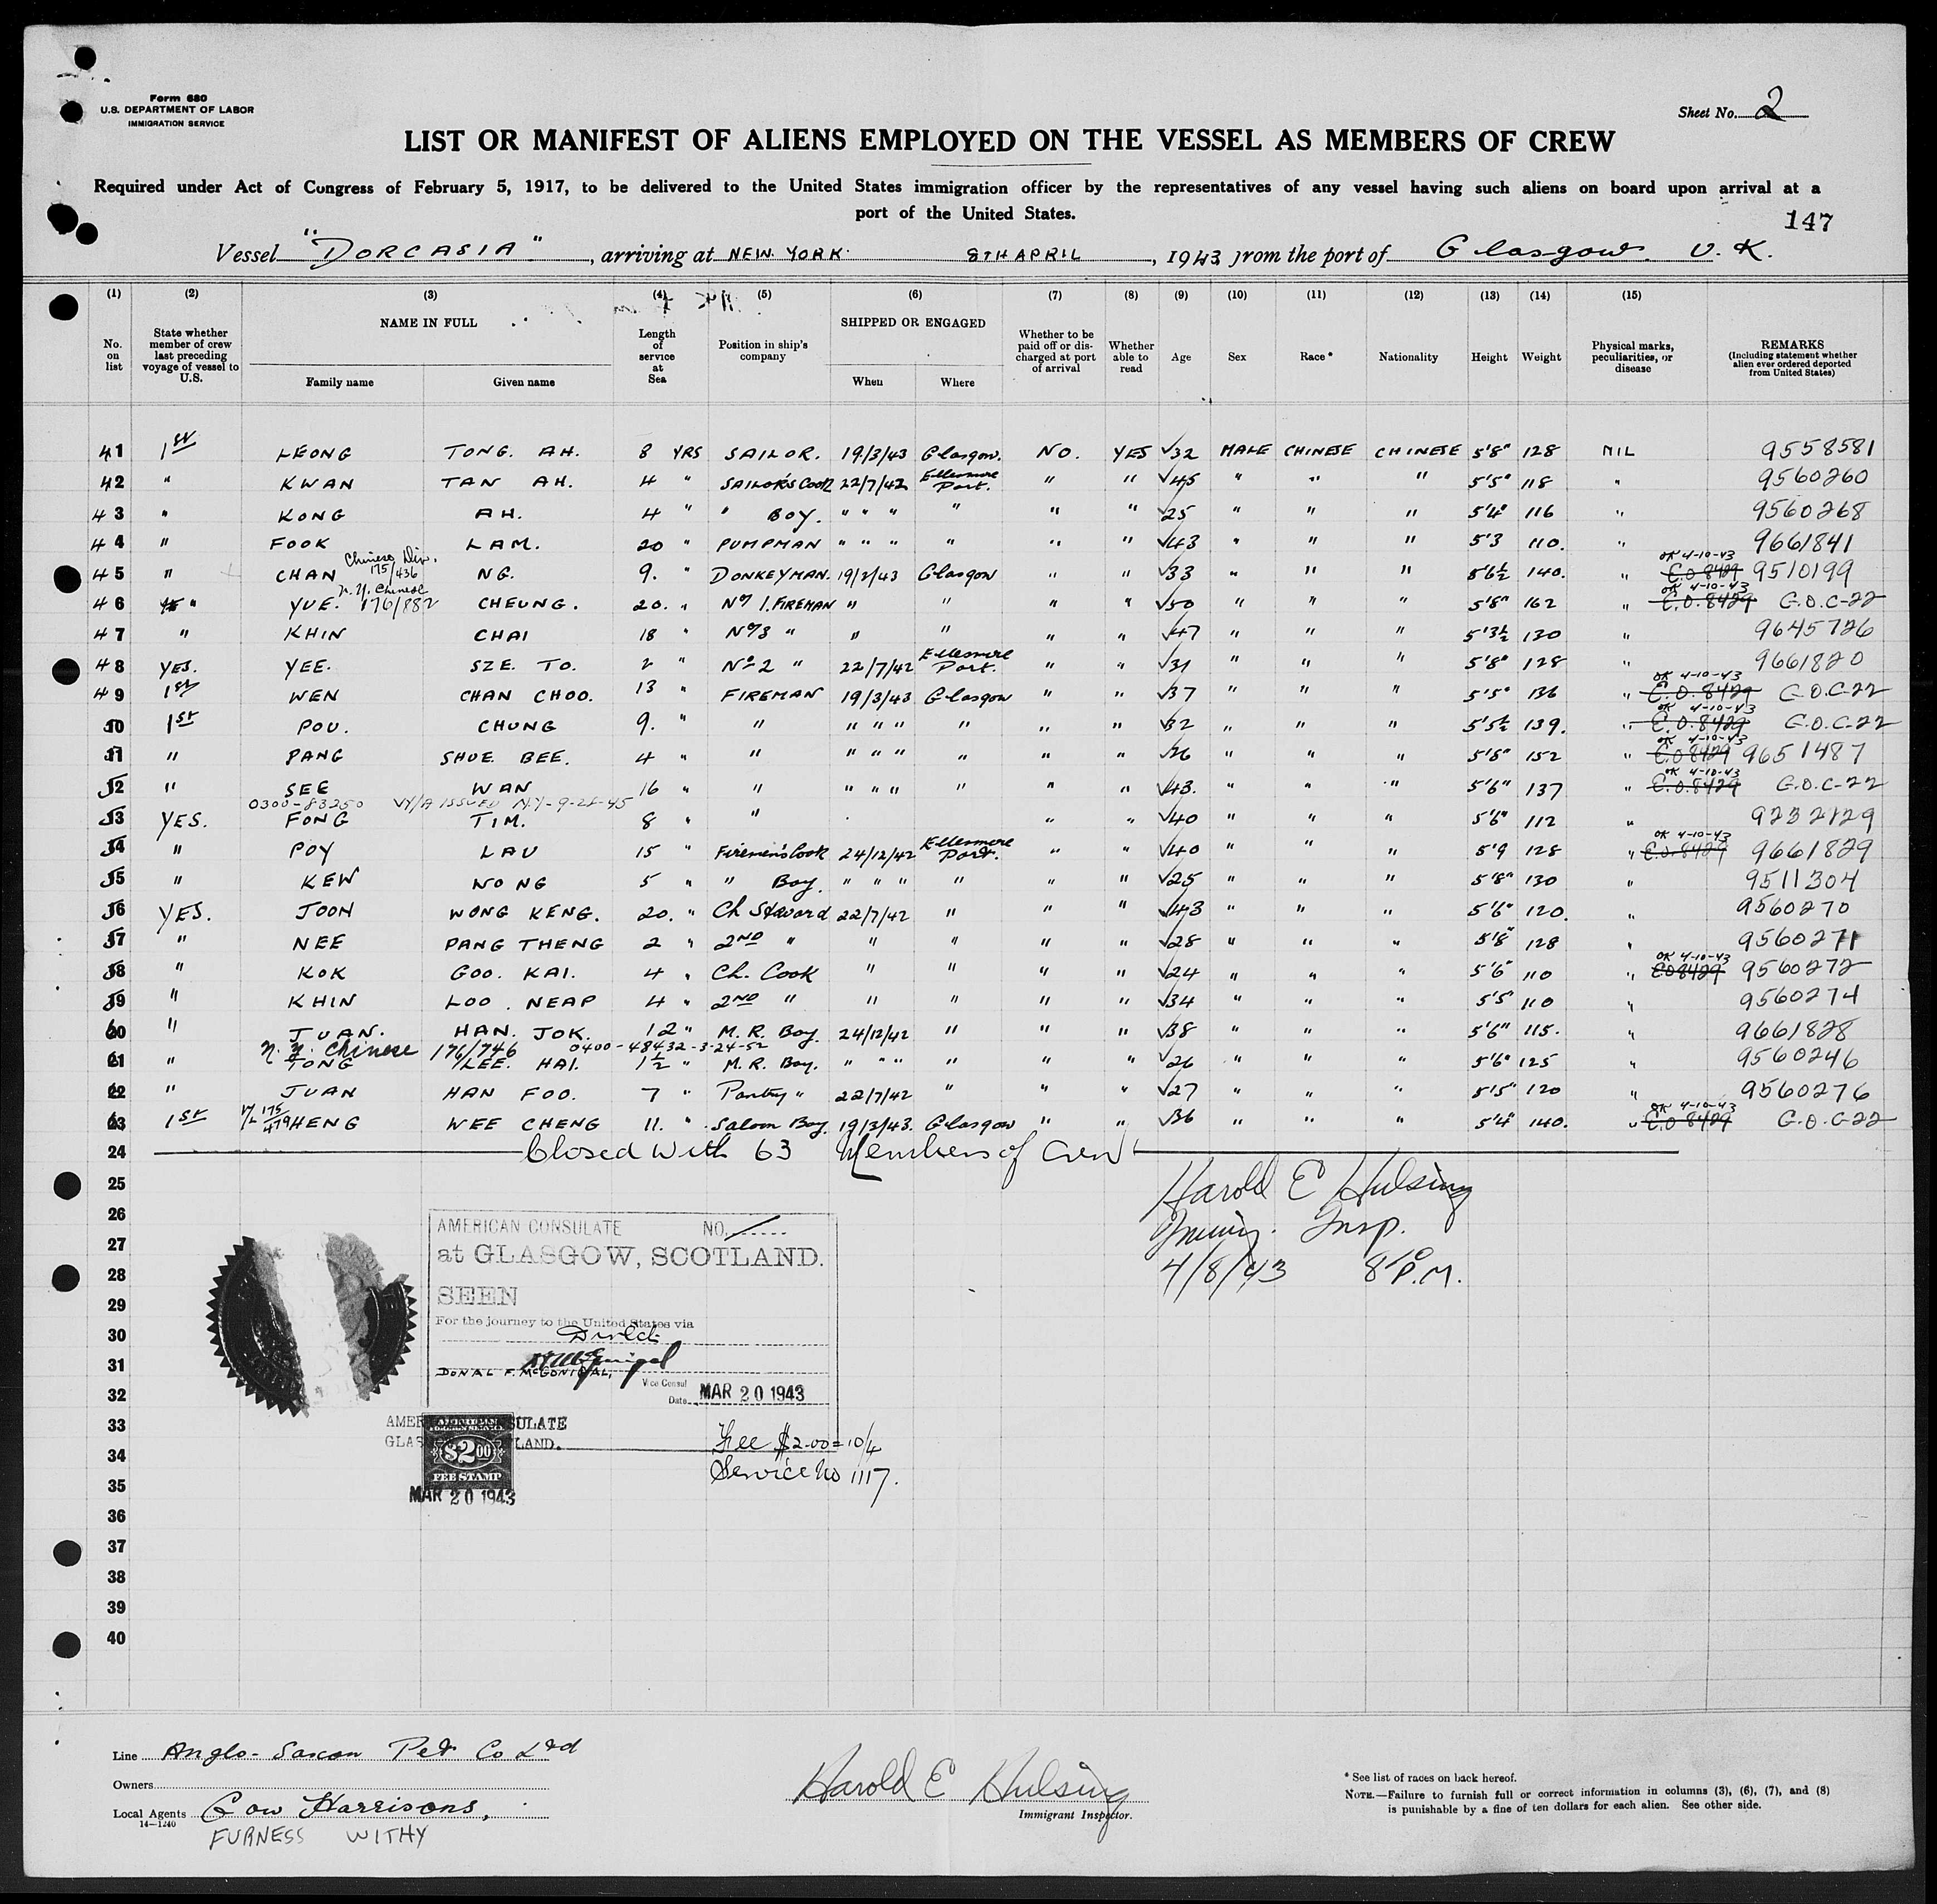 Form 680
U.S. DEPARTMENT OF LABOR
IMMIGRATION SERVICE
Sheet No. 2
LIST OR MANIFEST OF ALIENS EMPLOYED ON THE VESSEL AS MEMBERS OF CREW
Required under Act of Congress of February 5, 1917, to be delivered to the United States immigration officer by the representatives of any vessel having such aliens on board upon arrival at a
port of the United States.
147
Vessel "DORCASIA", arriving at NEW YORK. 8TH APRIL, 1943 from the port of Glasgow. U.K.
(1) (2) (3) (4) (5) (6) (7) (8) (9) (10) (11) (12) (13) (14) (15)
No. on list State whether member of crew last preceding voyage of vessel to U.S. NAME IN FULL Family name Given name Length of service at Sea Position in ship's company SHIPPED OR ENGAGED When Where Whether to be paid off or discharged at port of arrival Whether able to read Age Sex Race* Nationality Height Weight Physical marks, peculiarities, or disease REMARKS (Including statement whether alien ever ordered deported from United States)
41 1st LEONG TONG. AH. 8 YRS SAILOR. 19/3/43 Glasgow. NO. YES √32 MALE CHINESE CHINESE 5'8" 128 NIL 9558581
42 " KWAN TAN AH. 4 " SAILOR'S COOK 22/7/42 Ellesmere Port. " " √45 " " " 5'5" 118 " 9560260
43 " KONG AH. 4 " " BOY. " " " " " " √25 " " " 5'4" 116 " 9560268
44 " FOOK LAM. 20 " PUMPMAN " " " " " " √43 " " " 5'3 110. " 9661841
Chinese Div. 175/436 OK 4-10-43
45 " CHAN NG. 9. " DONKEYMAN. 19/3/43 Glasgow " " √33 " " " 5'6½ 140. " E.O 8429 9510199
N.Y. Chinese 176/882 OK 4-10-43
46 " YUE. CHEUNG. 20. " No 1. FIREMAN " " " " √50 " " " 5'8" 162 " E.O. 8429 G.O.C-22
47 " KHIN CHAI 18 " No 3 " " " " " √47 " " " 5'3½ 130 " 9645726
48 YES. YEE. SZE. TO. 2 " No 2 " 22/7/42 Ellesmere Port. " " √31 " " " 5'8" 128 " 9661820
OK 4-10-43
49 1st WEN CHAN CHOO. 13 " FIREMAN 19/3/43 Glasgow " " √37 " " " 5'5" 136 " E.O. 8429 G.O.C-22
OK 4-10-43
50 1st POU. CHUNG 9. " " " " " " " " √32 " " " 5'5½ 139. " E.O. 8429 G.O.C-22
OK 4-10-43
51 " PANG SHOE BEE. 4 " " " " " " " " √26 " " " 5'8" 152 " E.O 8429 9651487
OK 4-10-43
52 " SEE WAN 16 " " " " " " " " √43. " " " 5'6" 137 " E.O. 8429 G.O.C-22
0300-83250 V/A ISSUED N.Y-9-21-45
53 YES. FONG TIM. 8 " " " " √40 " " " 5'6" 112 " 9232129
OK 4-10-43
54 " POY LAU 15 " Firemen's Cook 24/12/42 Ellesmere Port. " " √40 " " " 5'9 128 " E.O. 8429 9661829
55 " KEW WONG 5 " " Boy. " " " " " " √25 " " " 5'8" 130 " 9511304
56 YES. JOON WONG KENG. 20. " Ch Steward 22/7/42 " " " √43 " " " 5'6" 120. " 9560270
57 " NEE PANG THENG 2 " 2ND " " " " " √28 " " " 5'8" 128 " 9560271
OK 4-10-43
58 " KOK GOO. KAI. 4 " Ch. Cook " " " " √24 " " " 5'6" 110 " EO 8429 9560272
59 " KHIN LOO. NEAP 4 " 2ND " " " " " √34 " " " 5'5" 110 " 9560274
60 " JUAN. HAN. JOK. 12 " M. R. Boy. 24/12/42 " " " √38 " " " 5'6" 115. " 9661828
N.Y. Chinese 176/746 0400-48432-3-24-52
61 " TONG LEE. HAI. 1½ " M. R. Boy. " " " " " " √26 " " " 5'6" 125 " 9560246
62 " JUAN HAN FOO. 7 " Pantry " 22/7/42 " " " √27 " " " 5'5" 120 " 9560276
175/479 OK 4-10-43
63 1st HENG WEE CHENG 11. " Saloon Boy. 19/3/43. Glasgow " " √36 " " " 5'4" 140. " E.O 8429 G.O.C-22
24 Closed with 63 Members of Crew
25 Harold E Hulsing
26 Immig. Insp.
27 4/8/43 8 10 P.M.
28
29
30
31
32
33
34
35
36
37
38
39
40
AMERICAN CONSULATE NO.
at GLASGOW, SCOTLAND.
SEEN
For the journey to the United States via
Direct
DONAL F. McGONIGAL,
Vice Consul
Date MAR 20 1943
AMERICAN CONSULATE
GLASGOW, SCOTLAND.
$2.00
FEE STAMP
MAR 20 1943
Fee $2.00 = 10/4
Service No 1117.
Line Anglo-Saxon Pet Co Ltd
Owners
Local Agents Gow Harrisons,
14-1240
FURNESS WITHY
Harold E Hulsing
Immigrant Inspector.
* See list of races on back hereof.
NOTE.—Failure to furnish full or correct information in columns (3), (6), (7), and (8)
is punishable by a fine of ten dollars for each alien. See other side.